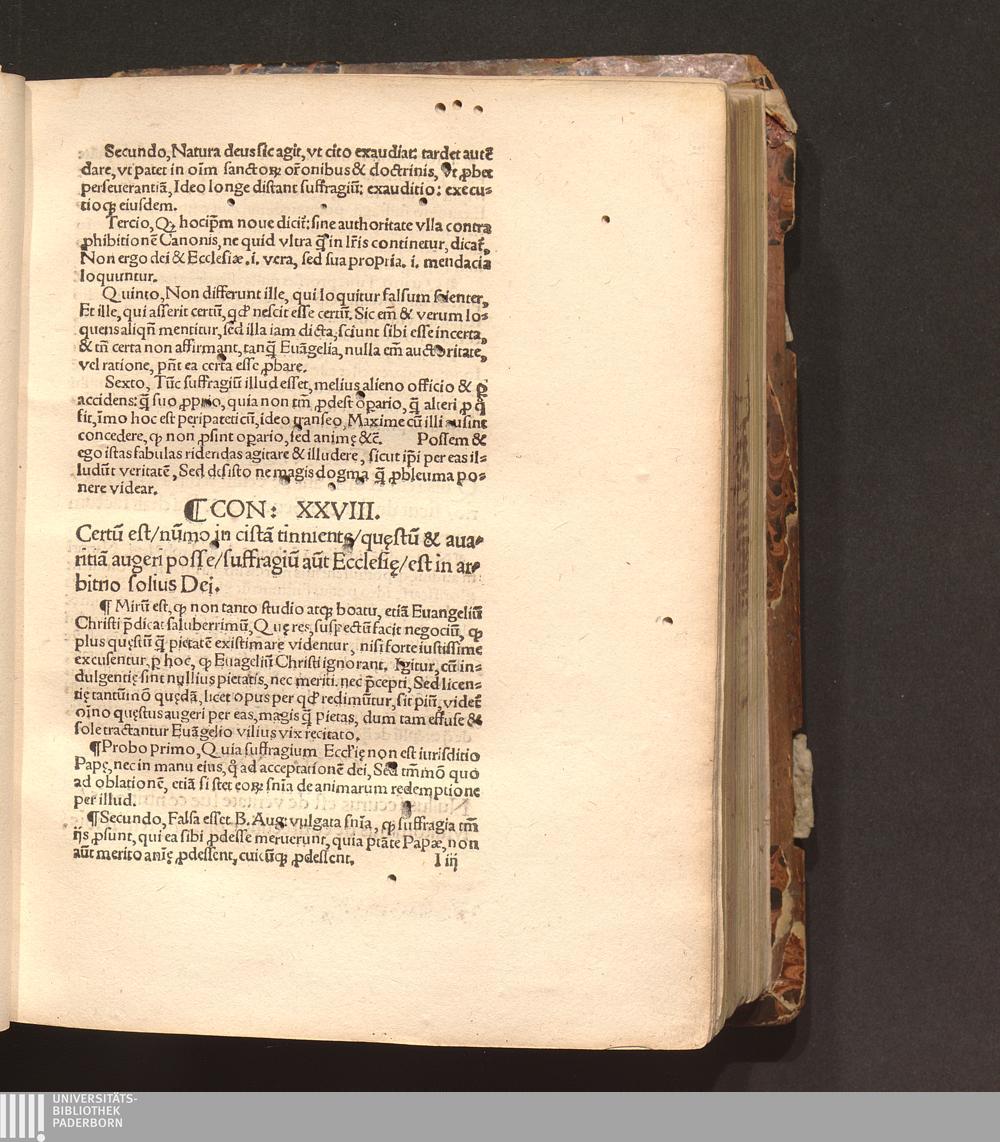 Secundo, Natura deus sic agit, vt cito exaudiat: tardet autē
dare, vt patet in oīm sanctoꝝ orōnibus & doctrinis, Vt ꝓbet
perseuerantiā, Ideo longe distant suffragiū: exauditio: execu-
tioꝗ eiusdem.
Tercio, Qꝫ hocip̄m noue dicit̄: sine authoritate vlla contra
ꝓhibitionē Canonis, ne quid vltra ꝗ̄ in lr̄is continetur, dicat̄,
Non ergo dei & Ecclesiæ .i. vera, sed sua propria .i. mendacia
loquuntur.
Quinto, Non differunt ille, qui loquitur falsum scienter,
Et ille, qui asserit certū, qd' nescit esse certū. Sic em̄ & verum lo-
quens aliqn̄ mentitur, sed illa iam dicta, sciunt sibi esse incerta,
& tn̄ certa non affirmant, tanꝗ̄ Euāgelia, nulla em̄ auctoritate,
vel ratione, pn̄t ea certa esse ꝓbare.
Sexto, Tūc suffragiū illud esset, melius alieno officio & ꝑ
accidens: ꝗ̄ suo ꝓprio, quia non tm̄ ꝓdest oꝑario, ꝗ̄ alteri ꝓ quo
fit, īmo hoc est peripateticū, ideo transeo, Maxime cū illi ausint
concedere, ꝙ non ꝓsint oꝑario, sed animę &c̄. Possem &
ego istas fabulas ridendas agitare & illudere, sicut ip̄i per eas il-
ludūt veritatē, Sed desisto ne magis dogma ꝗ̄ ꝓbleuma po-
nere videar.
¶ CON: XXVIII.
Certū est/nūmo in cistā tinniente/quęstū & aua-
ritiā augeri posse/suffragiū aūt Ecclesię/est in ar-
bitrio solius Dei.
¶ Mirū est, ꝙ non tanto studio atqꝫ boatu, etiā Euangeliū
Christi p̄dicāt saluberrimū, Quę res, suspectū facit negociū, ꝙ
plus quęstū ꝗ̄ pietatē existimare videntur, nisi forte iustissime
excusentur ꝑ hoc, ꝙ Euāgeliū Christi ignorant. Igitur, cū in-
dulgentię sint nullius pietatis, nec meriti, nec p̄cepti, Sed licen-
tię tantūmō quędā, licet opus per qd' redimūtur, sit piū, videt̄
oīno quęstus augeri per eas, magis ꝗ̄ pietas, dum tam effuse &
sole tractantur Euāgelio vilius vix recitato.
¶ Probo primo, Quia suffragium Eccl'ię non est iurisditio
Papę, nec in manu eius, quo ad acceptationē dei, Sed tm̄mō quo
ad oblationē, etiā si stet eoꝝ sn̄ia de animarum redemptione
per illud.
¶ Secundo, Falsa esset B. Aug: vulgata sn̄ia, ꝙ suffragia tm̄
ijs ꝓsunt, qui ea sibi ꝓdesse meruerunt, quia ptāte Papæ, non
aūt merito anīę ꝓdessent, cuicūqꝫ ꝓdessent. I iij
UNIVERSITÄTS-
BIBLIOTHEK
PADERBORN